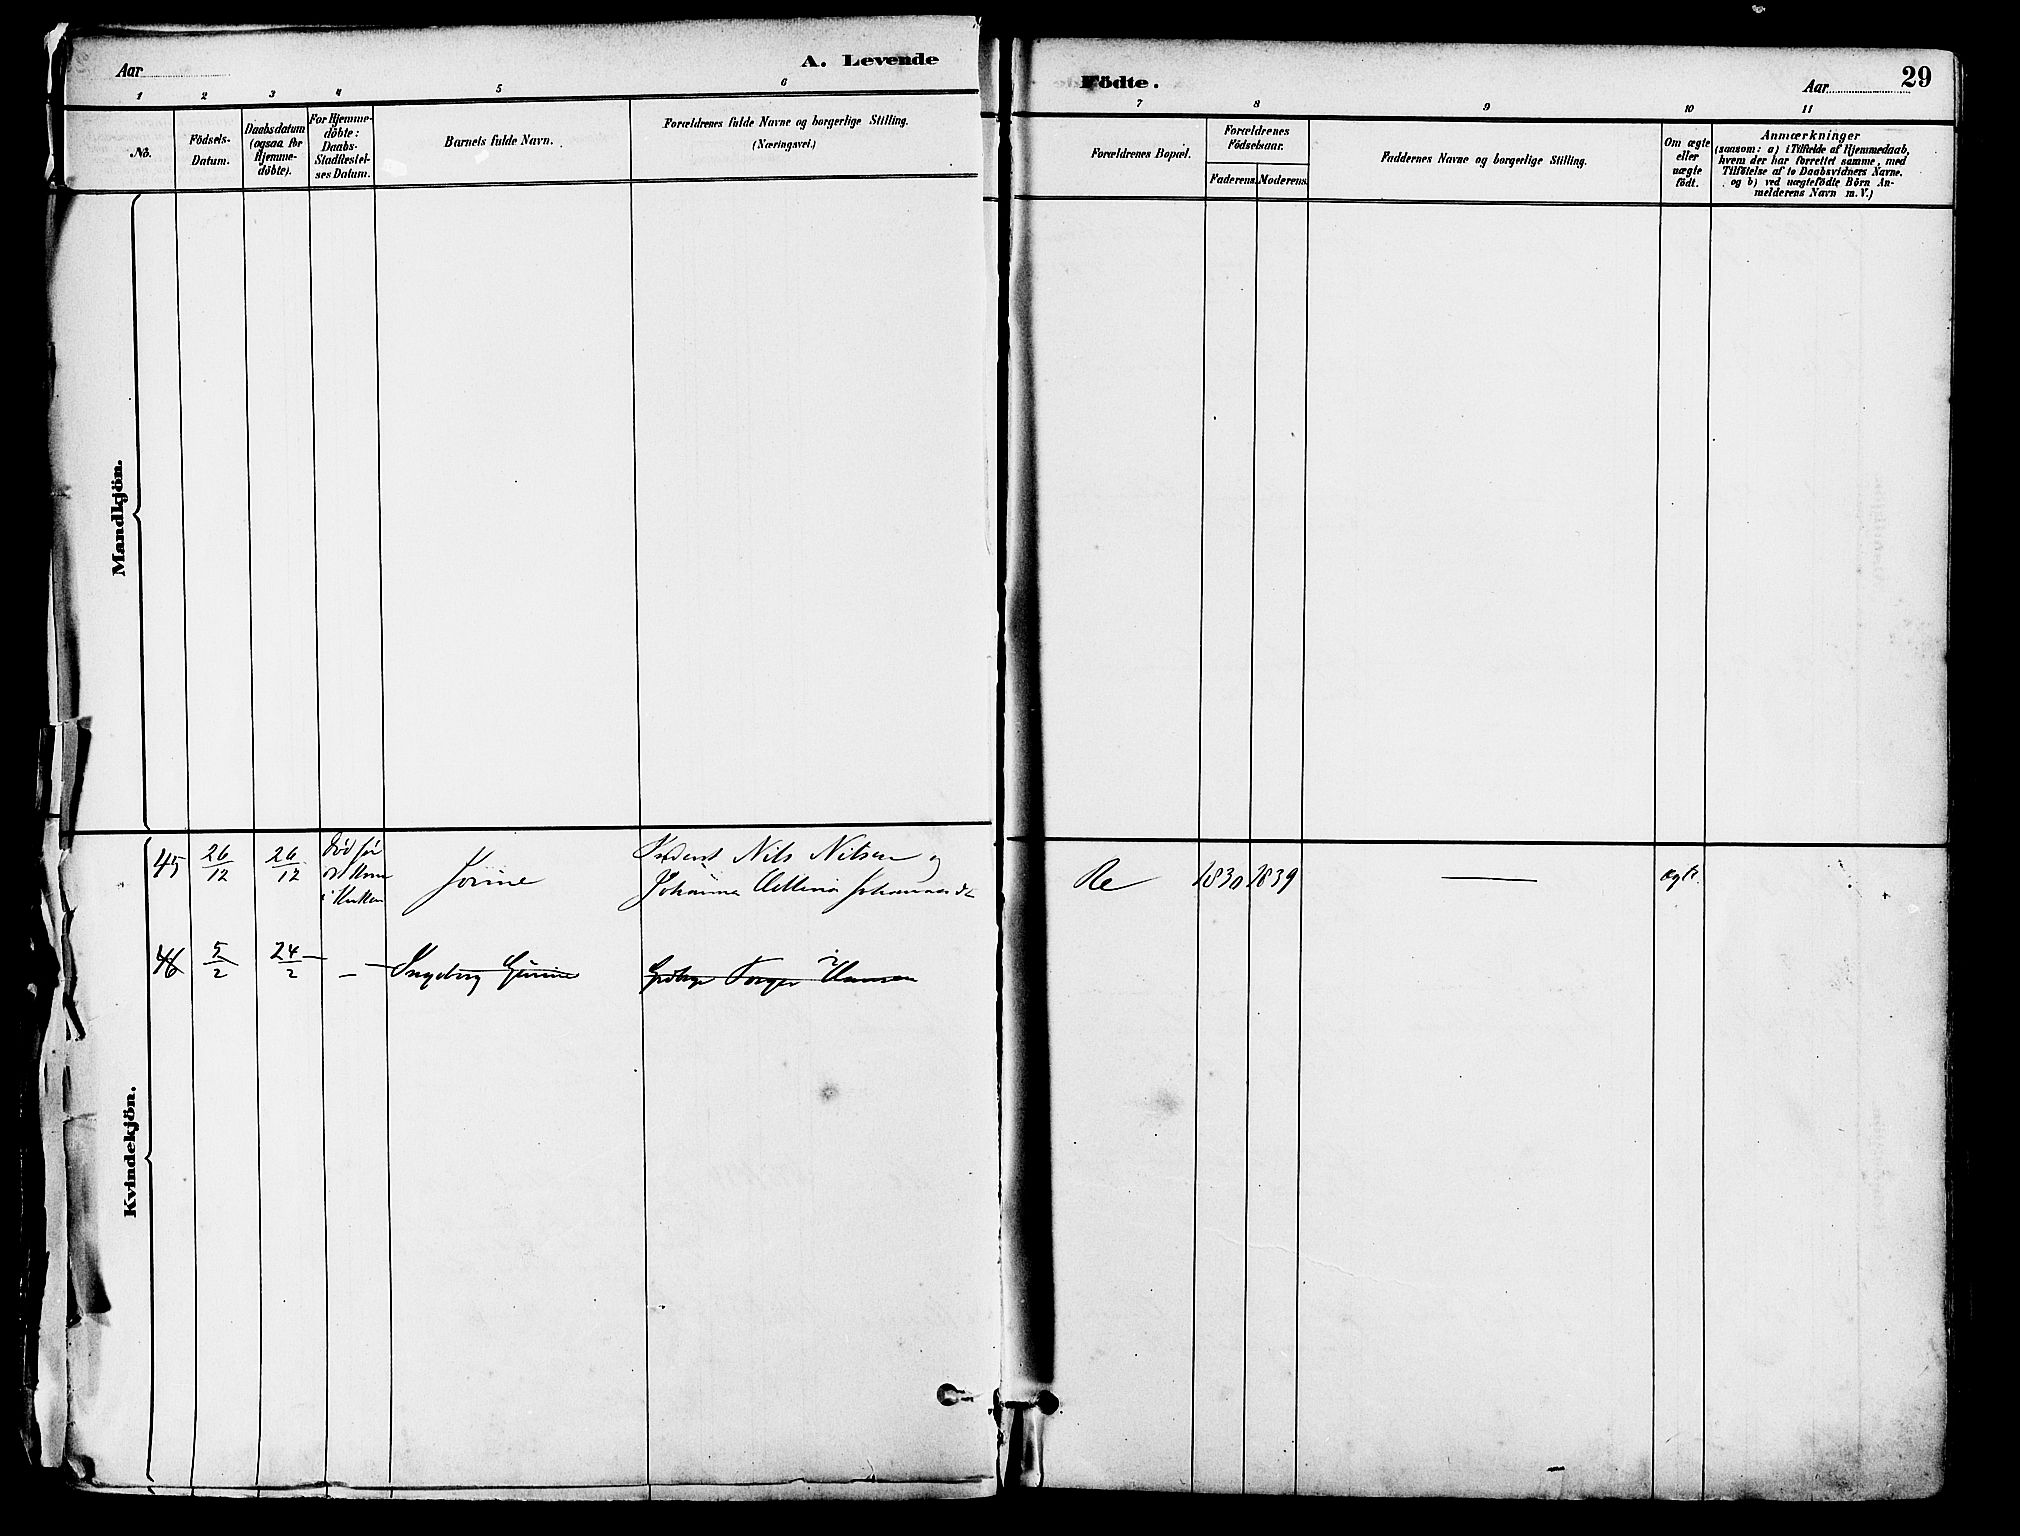 Aar
A. Levende
1
2
3
4
5
6
No.
Födsels-
Datum.
Daabsdatum
(ogsaa for
Hjemme-
döbte).
For Hjemme-
döbte:
Daabs-
Stadfæstel-
ses Datum.
Barnets fulde Navn.
Forældrenes fulde Navne og borgerlige Stilling.
(Næringsvei.)
Mandkjön.
Kvindekjön.
45
26/12
26/12
Död før
i Kirken
Jorine
Nils Nilsen og
Johanna
46
5/2
24/2
—
Ingeborg Gurine
Torger Hansen
Födte.
Aar
29
7
8
9
10
11
Forældrenes Bopæl.
Forældrenes
Födselsaar.
Faderens.
Moderens.
Faddernes Navne og borgerlige Stilling.
Om ægte
eller
uægte
födt.
Anmærkninger
(saasom: a) i Tilfælde af Hjemmedaab,
hvem der har forrettet samme, med
Tilföielse af to Daabsvidners Navne.
og b) ved uægtefödte Börn An-
melderens Navn m. V.)
Re
1830
1839
—
ægte